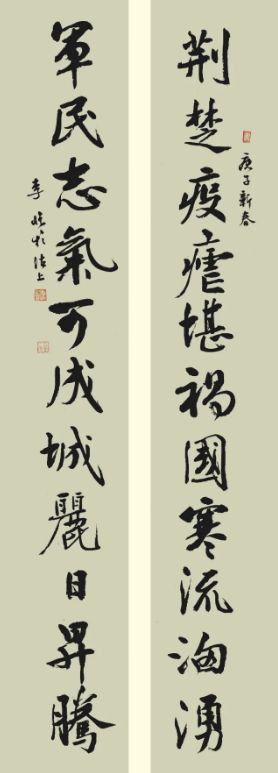 荆楚疫瘧堪禍國寒流洶湧
庚子新春
軍民志氣可成城麗日昇騰
李